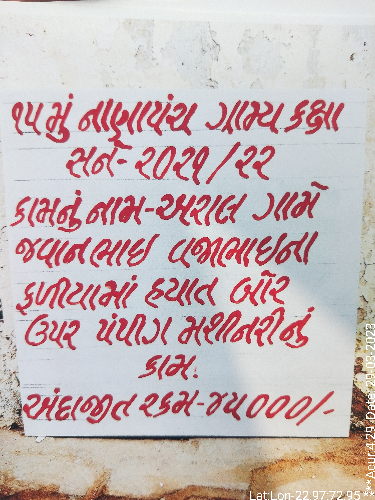 ૧૫ મું નાણાપંચ ગ્રામ્ય કક્ષા
સને-૨૦૨૧/૨૨
કામનું નામ-અરાલ ગામે
જવાનભાઇ વજાભાઇના
ફળીયામાં હયાત બોર
ઉપર પંપીગ મશીનરીનું
કામ.
અંદાજીત રકમ-૪૫૦૦૦/-
Lat:Lon-22.97:72.95
***Acur:4.29, Date: 29-03-2023